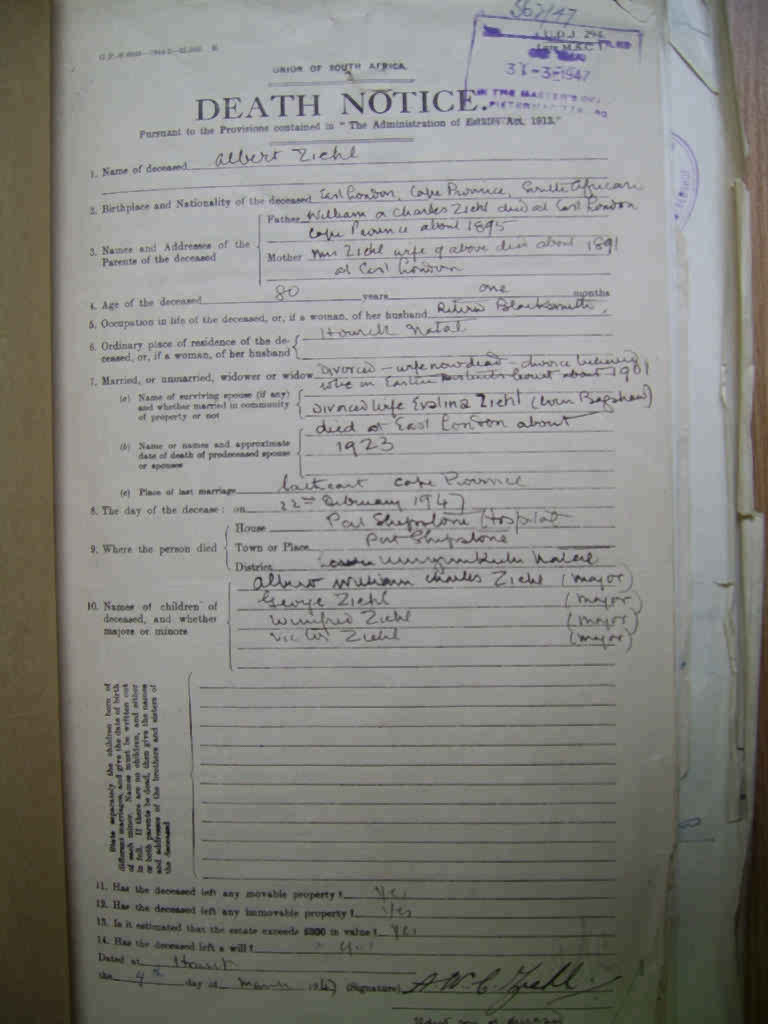 567/47
31-3-1947
IN THE MASTER'S
UNION OF SOUTH AFRICA.
DEATH NOTICE.
Pursuant to the Provisions contained in "The Administration of Estates Act, 1913."
1. Name of deceased Albert Ziehl
2. Birthplace and Nationality of the deceased East London, Cape Province, South African
3. Names and Addresses of the Parents of the deceased
Father William a Charles Ziehl died at East London
Cape Province about 1895
Mother Mrs Ziehl wife of above died about 1891
at East London
4. Age of the deceased 80 years one months
5. Occupation in life of the deceased, or, if a woman, of her husband Retired Blacksmith
6. Ordinary place of residence of the de-
ceased, or, if a woman, of her husband
Howick Natal
7. Married, or unmarried, widower or widow Divorced - wife now dead - divorce believed
in Eastern Districts Court about 1901
(a) Name of surviving spouse (if any)
and whether married in community
of property or not
Divorced wife Evalina Ziehl (born Bagshaw)
died at East London about
(b) Name or names and approximate
date of death of predeceased spouse
or spouses
1923
(c) Place of last marriage Cathcart Cape Province
8. The day of the decease: on 22nd February 1947
9. Where the person died
House Port Shepstone Hospital
Town or Place Port Shepstone
District Umzimkulu Natal
10. Names of children of
deceased, and whether
majors or minors
Albert William Charles Ziehl (major)
George Ziehl (major)
Winifred Ziehl (major)
Victor Ziehl (major)
State separately the children born of
different marriages, and give the date of birth
of each minor. Names must be written out
in full. If there are no children, and either
or both parents be dead, then give the names
and addresses of the brothers and sisters of
the deceased
11. Has the deceased left any movable property? Yes
12. Has the deceased left any immovable property? Yes
13. Is it estimated that the estate exceeds £300 in value? Yes
14. Has the deceased left a will? Yes
Dated at Howick
the 4th day of March 1947 (Signature) A.W.C. Ziehl